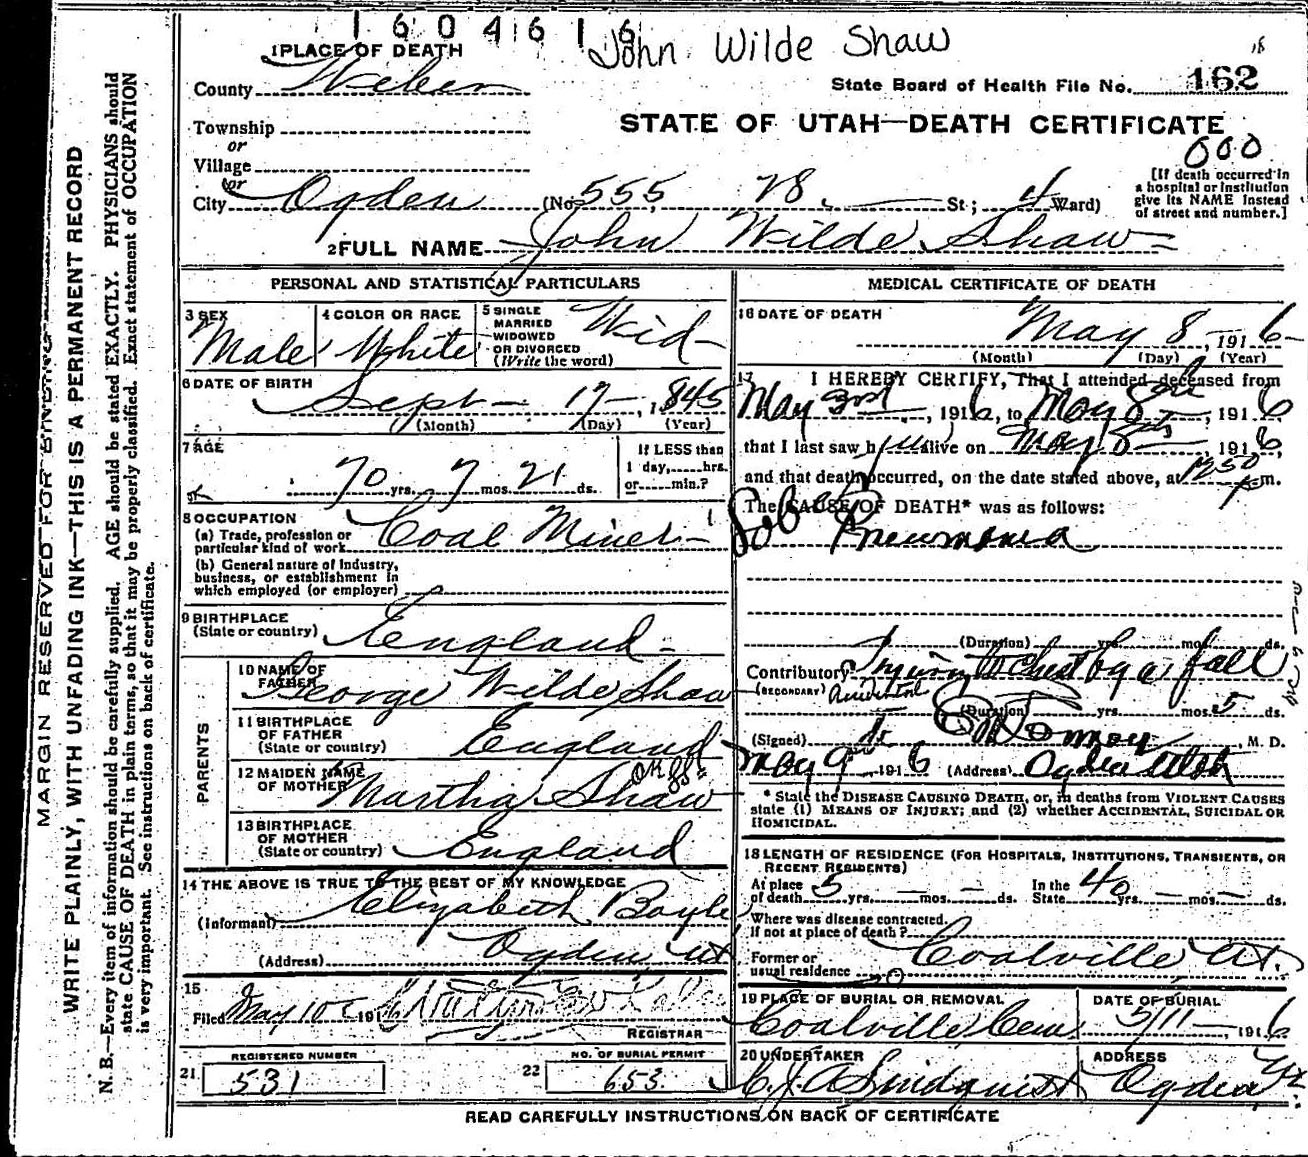 1604616
John Wilde Shaw
1 PLACE OF DEATH
County Weber
State Board of Health File No. 162
Township
or
Village
or
City Ogden (No. 555, 28. St.; 4 Ward)
STATE OF UTAH—DEATH CERTIFICATE
000
[If death occurred in
a hospital or institution
give its NAME instead
of street and number.]
2 FULL NAME John Wilde Shaw
PERSONAL AND STATISTICAL PARTICULARS
3 SEX
Male
4 COLOR OR RACE
White
5 SINGLE
MARRIED
WIDOWED
OR DIVORCED
(Write the word)
Wid
6 DATE OF BIRTH
Sept - 17 -, 1845
(Month) (Day) (Year)
7 AGE
70 yrs. 7 mos. 21 ds.
If LESS than
1 day,......hrs.
or......min.?
8 OCCUPATION
(a) Trade, profession or
particular kind of work Coal Miner
(b) General nature of Industry,
business, or establishment in
which employed (or employer)
9 BIRTHPLACE
(State or country) England
PARENTS
10 NAME OF
FATHER George Wilde Shaw
11 BIRTHPLACE
OF FATHER
(State or country) England
12 MAIDEN NAME
OF MOTHER Martha Shaw
13 BIRTHPLACE
OF MOTHER
(State or country) England
14 THE ABOVE IS TRUE TO THE BEST OF MY KNOWLEDGE
(Informant) Elizabeth Boyle
(Address) Ogden, Ut
15
Filed May 10 191
REGISTRAR
21 REGISTERED NUMBER
531
22 NO. OF BURIAL PERMIT
653
MEDICAL CERTIFICATE OF DEATH
16 DATE OF DEATH
May 8 -, 1916
(Month) (Day) (Year)
17 I HEREBY CERTIFY, That I attended deceased from
May 3rd, 1916, to May 8th, 1916
that I last saw him alive on May 8th 1916,
and that death occurred, on the date stated above, at 1250 p m.
The CAUSE OF DEATH* was as follows:
Lob Pneumonia
(Duration) yrs. mos. ds.
Contributory Injury to Chest by a fall
(SECONDARY) Accidental
(Duration) yrs. mos. 5 ds.
(Signed) M. D.
May 9th 1916 (Address) Ogden Utah
* State the DISEASE CAUSING DEATH, or, in deaths from VIOLENT CAUSES
state (1) MEANS OF INJURY; and (2) whether ACCIDENTAL, SUICIDAL OR
HOMICIDAL.
18 LENGTH OF RESIDENCE (FOR HOSPITALS, INSTITUTIONS, TRANSIENTS, OR
RECENT RESIDENTS)
At place
of death 5 yrs. — mos. — ds. In the
State 40 yrs. — mos. — ds.
Where was disease contracted,
If not at place of death?
Former or
usual residence Coalville Ut.
19 PLACE OF BURIAL OR REMOVAL
Coalville Cem.
DATE OF BURIAL
5/11 — 1916
20 UNDERTAKER
C. J. A. Lindquist
ADDRESS
Ogden Ut.
READ CAREFULLY INSTRUCTIONS ON BACK OF CERTIFICATE
MARGIN RESERVED FOR BINDING
WRITE PLAINLY, WITH UNFADING INK—THIS IS A PERMANENT RECORD
N. B.—Every item of information should be carefully supplied. AGE should be stated EXACTLY. PHYSICIANS should
state CAUSE OF DEATH in plain terms, so that it may be properly classified. Exact statement of OCCUPATION
is very important. See instructions on back of certificate.